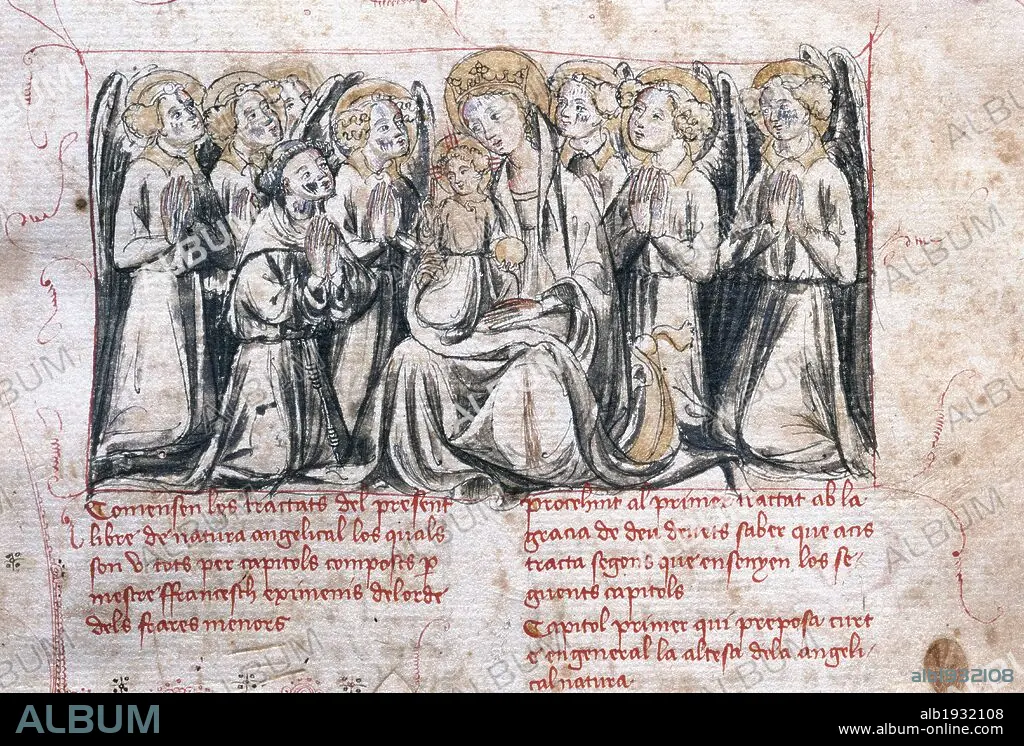 Comensen les tractats del present
libre de natura angelical los quals
son v tots per capitols composts p
mestre ffrancesch eximenis del orde
dels frares menors
procehint al primer tractat ab la
gracia de deu devets saber que acis
tracta segons que ensenyen los se-
guents capitols
Capitol primer qui preposa curt
e en general la altesa dela angeli-
cal natura.
ALBUM
alb1932108
alb1932108
www.album-online.com